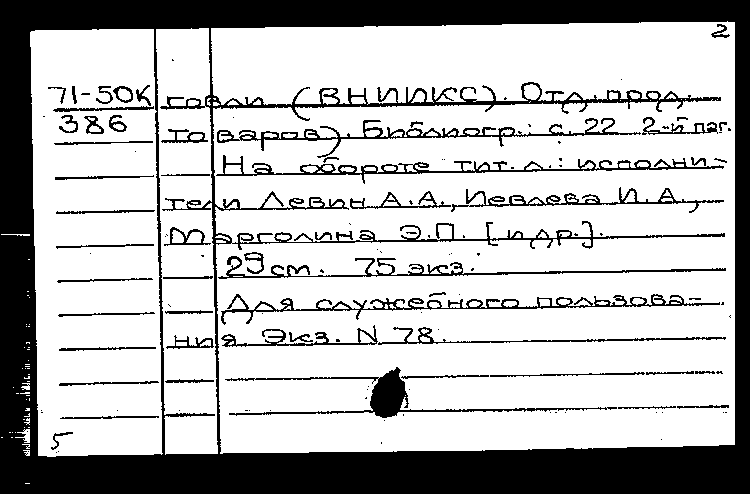 2
71-50К говли (ВНИИКС). Отд. прод.
386 товаров). Библиогр.: с. 22 2-й паг.
На обороте тит. л.: исполни-
тели Левин А.А., Иевлева И.А.,
Марголина Э.П. [и др.].
29 см. 75 экз.
Для служебного пользова-
ния. Экз. N 78.
5